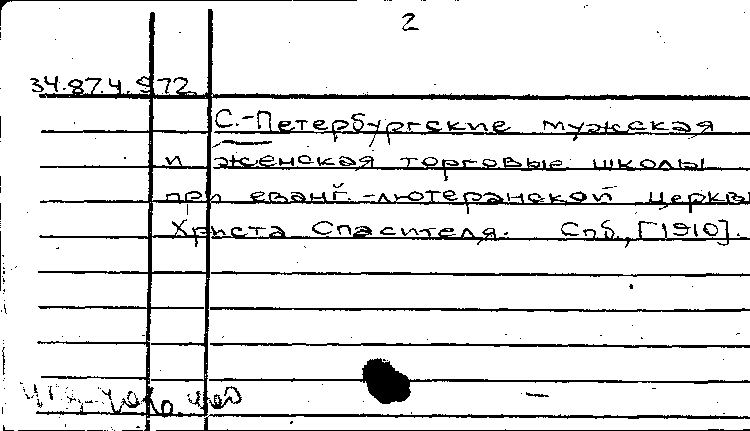 2
34.87.4.972
С.-Петербургские мужская
и женская торговые школы
при еванг.-лютеранской церкви
Христа Спасителя. Спб., [1910].